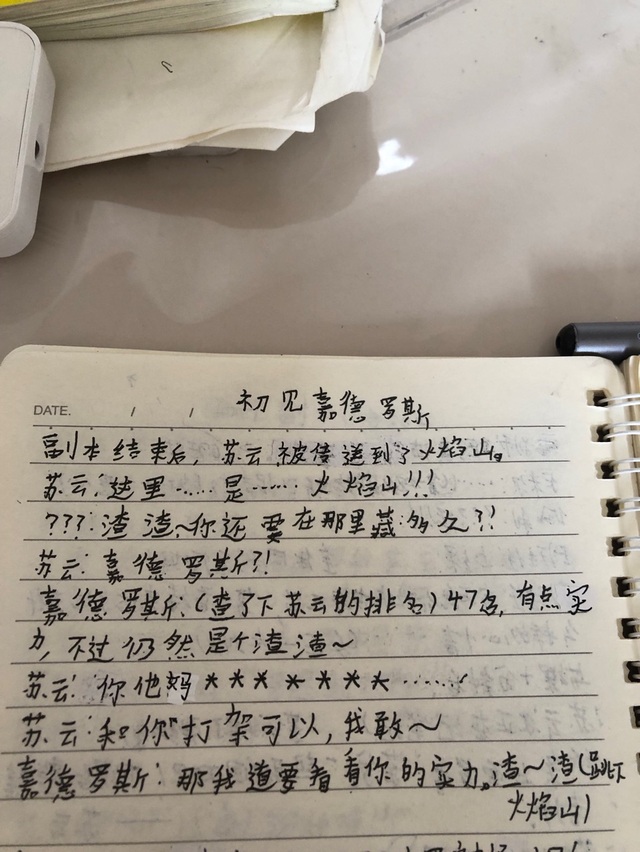 初见嘉德罗斯
DATE. / /
副本结束后，苏云被传送到了火焰山。
苏云：这里……是……火焰山!!!
???：渣渣~你还要在那里藏多久?!
苏云：嘉德罗斯?!
嘉德罗斯：(查了下苏云的排名)47名，有点实
力，不过仍然是个渣渣~
苏云：你他妈*******……
苏云：和你打架可以，我敢~
嘉德罗斯：那我道要看看你的实力。渣~渣(跳下
火焰山)